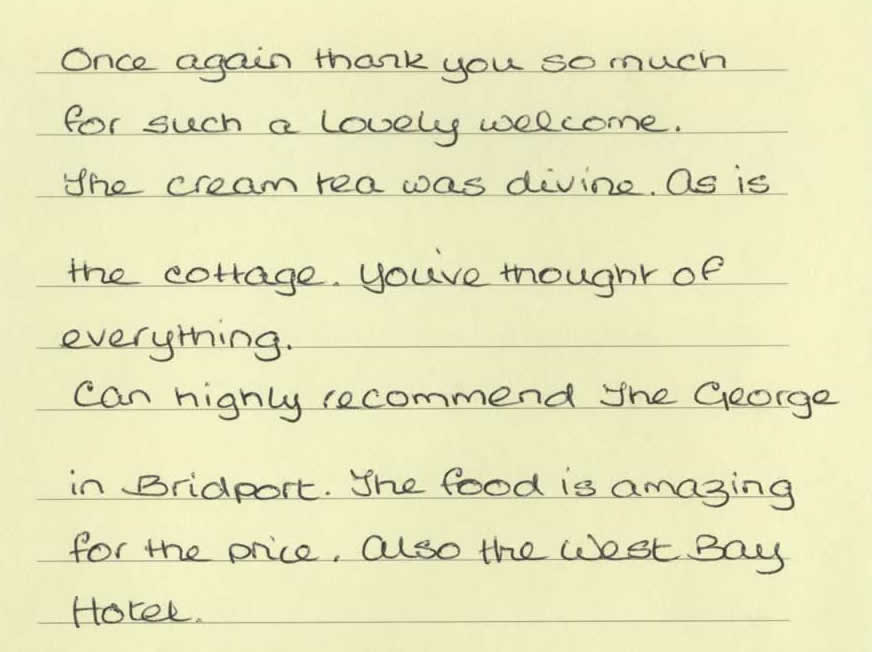 Once again thank you so much
for such a lovely welcome.
The cream tea was divine. As is
the cottage. You've thought of
everything.
Can highly recommend The George
in Bridport. The food is amazing
for the price. Also the West Bay
Hotel.